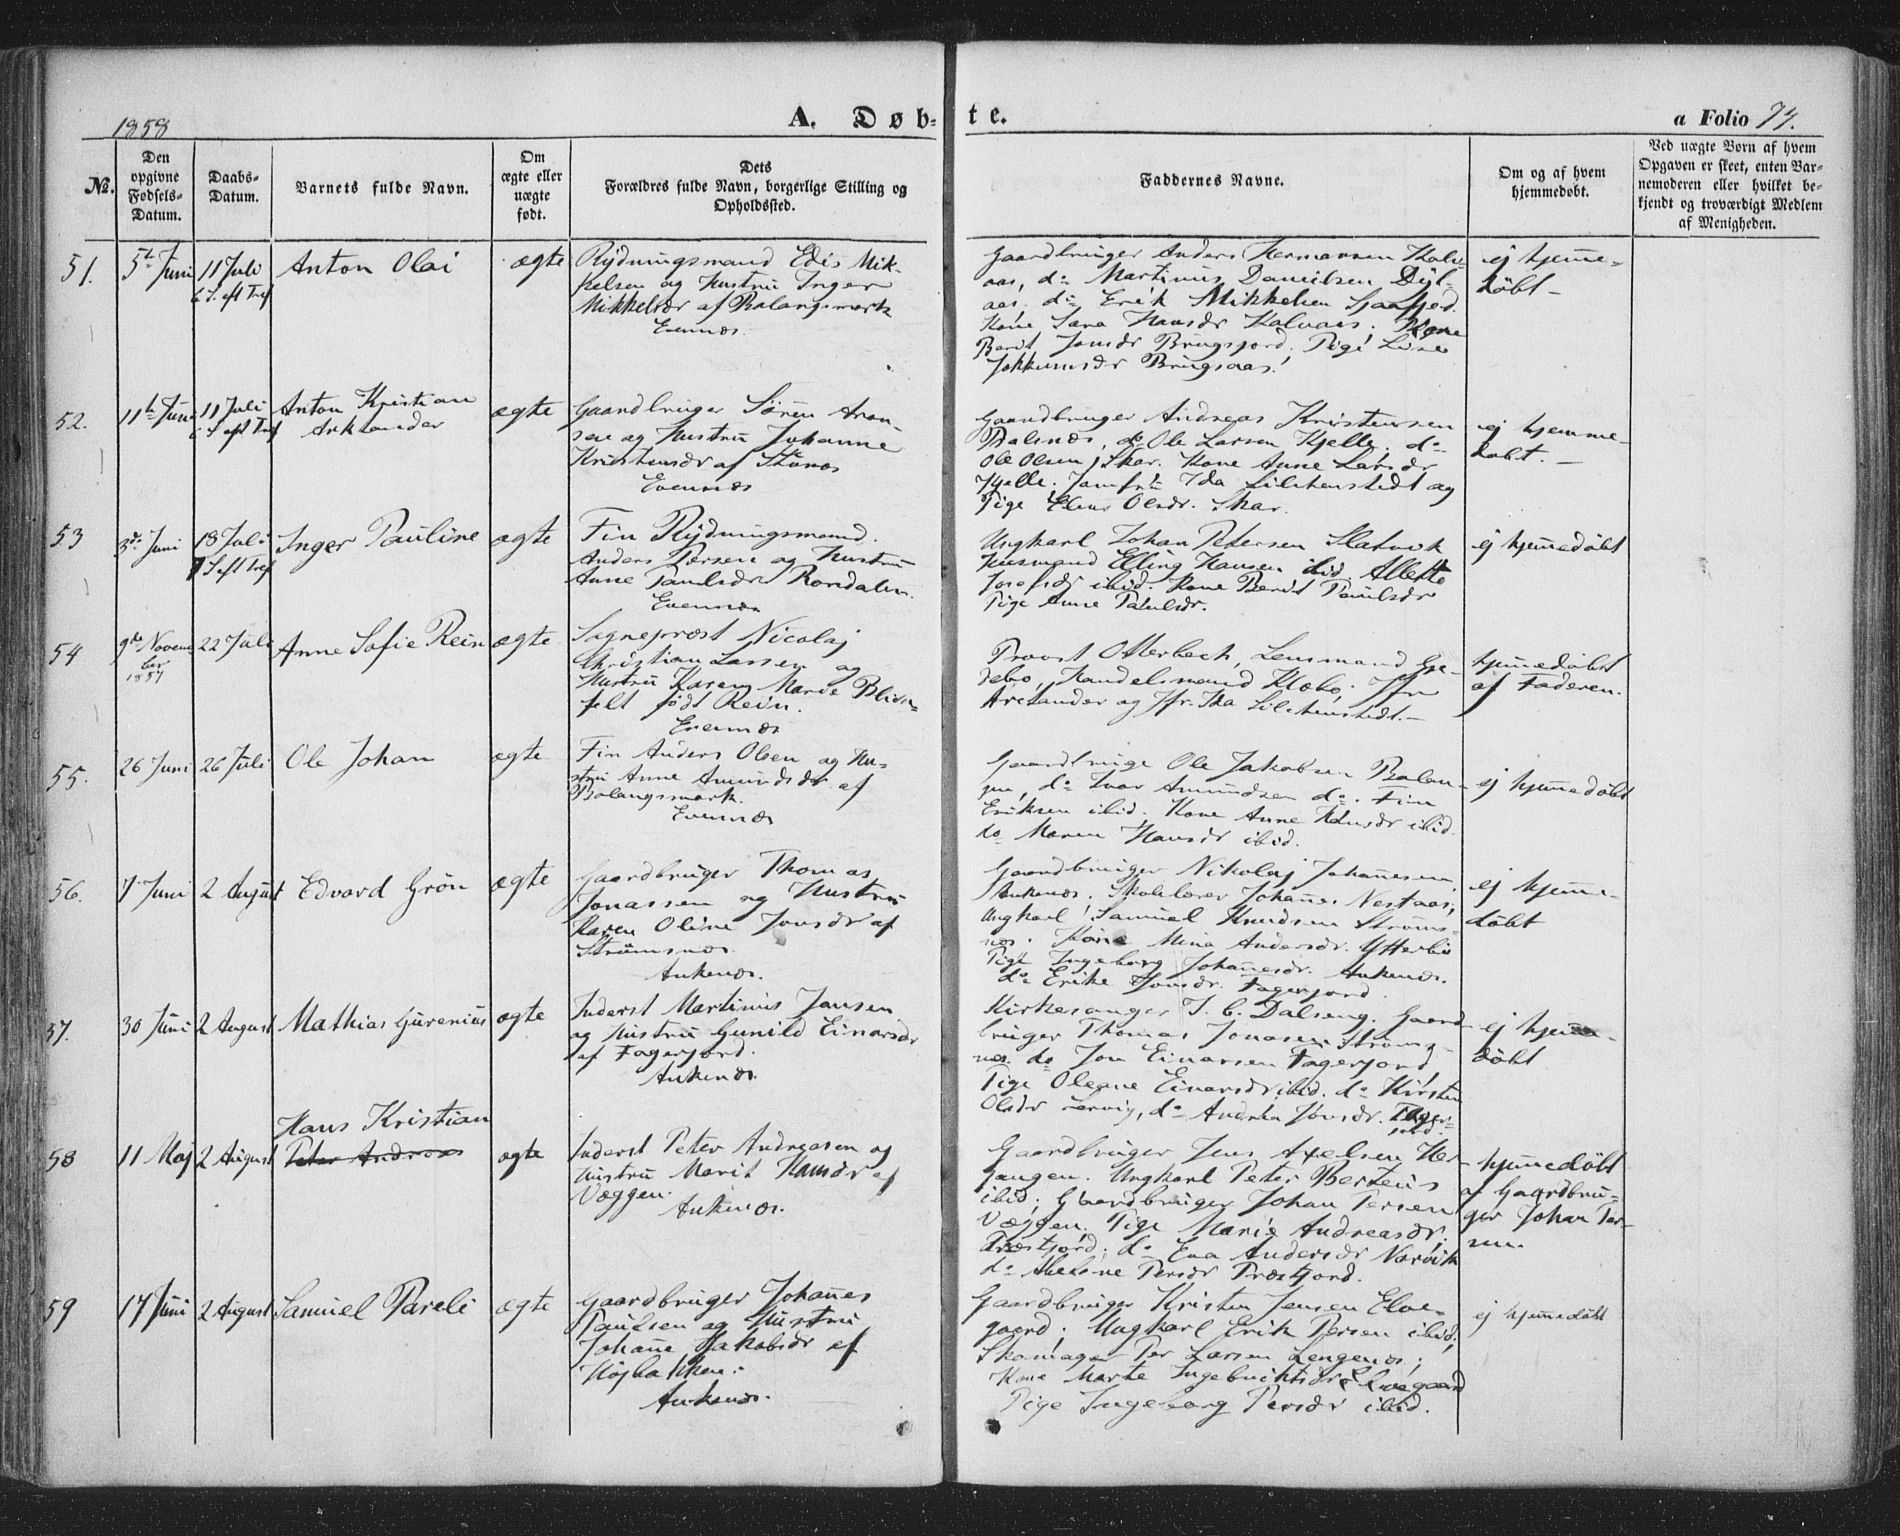 1858
A. Døb-
te.
a Folio 77.
№.
Den opgivne Fødsels-Datum.
Daabs-Datum.
Barnets fulde Navn.
Om ægte eller uægte født.
Dets Forældres fulde Navn, borgerlige Stilling og Opholdssted.
Faddernes Navne.
Om og af hvem hjemmedøbt.
Ved uægte Børn af hvem Opgaven er skeet, enten Barnemoderen eller hvilket bekjendt og troværdigt Medlem af Menigheden.
51. 5te Juni 11 Juli 6 S. eft Tref Anton Olai ægte
Rydningsmand Edis Mik-
kelsen og Hustru Inger
Mikkelsdr af Balangsmark
Evennes.
Gaardbruger Anders Hermansen Kalv-
aas, do Martinus Danielsen Dyl-
aas. do Erik Mikkelsen Sjaafjord.
Kone Sara Hansdr Kalvaas. Kone
Berit Jonsdr Brugsfjord. Pige Lise
Jokkumsdr Brugsaas.
ej hjeme-
döbt -
52. 11te Juni 11 Juli 6 S. eft Tref Anton Kristian
Arktander ægte
Gaardbruger Sören Aron-
sen og Hustru Johanne
Kristensdr af Stunes
Evennes
Gaardbruger Andreas Kristensen
Balsnes, do Ole Larsen Kjelle. do
Ole Olsen, Skar. Kone Anne Larsdr
Kjelle. Jomfru Ida Lilienstedt og
Pige Elen Olsdr. Skar.
ej hjemme-
döbt. -
53 3de Juni 18 Juli 7 S eft Tref Inger Pauline ægte
Fin Rydningsmand.
Anders Larsen og Hustru
Anne Paulsdr
Evennes
Ungkarl Johan Petersen
Husmand Elling Hansen ibid. Allette
Josefsdr ibid. Kone Berit Paulsdr
Pige Anne Paulsdr.
ej hjemmedöbt
54 9de Novem
ber
1857 22 Juli Anne Sofie Rein ægte
Sogneprest Nicolaj
Christian Lassen og
Hustru Karen Marie Blixen-
felt födt Rein.
Evennes
Provst Otterbech, Lensmand Gje-
debo, Handelsmand Klæbo; Jfr
Arctander og Jfr. Ida Lilienstedt. -
hjemmedöbt
af Faderen.
55. 26 Juni 26 Juli Ole Johan ægte
Fin Anders Olsen og Hu-
stru Anne Amundsdr af
Balangsmark.
Evennes
Gaardbruge Ole Jakobsen Balan-
gen, do Ivar Amundsen do. Fin
Eriksen ibid. Kone Anne ibid.
do Maren Hansdr ibid.
ej hjemmedöbt
56. 7 Juni 2 August Edvard Grön ægte
Gaardbruger Thomas
Jonassen og Hustru
Karen Oline Jonsdr af
Strömsnes.
Ankenes.
Gaardbruger Nikolaj Johannesen,
Ankenes. Skolelærer Johannes Nestaas;
Ungkarl Samuel Knudsen Ströms-
nes. Kone Mina Andersdr. Ytterbö
Pige Ingeborg Johannesdr. Ankenes.
do Erike Jonsdr. Fagerfjord.
ej hjeme-
döbt
57. 30 Juni 2 August Mathias Gurenius ægte
Inderst Martinus Jansen
og Hustru Gunild Einarsdr
af Fagerfjord.
Ankenes.
Kirkesanger J. C. Dalseng. Gaard-
bruger Thomas Jonasen Ströms-
nes. do Jon Einarsen Fagerfjord,
Pige Oleane Einarsdr ibid. do Kirsten
Olsdr Lervig, do Andrea Jonsdr. Fager-
fjord.
ej hjeme-
döbt
Hans Kristian
58 11 Maj 2 August Peter Andreas ægte
Inderst Peter Andreasen og
Hustru Marit Hansdr af
Væggen.
Ankenes.
Gaardbruger Jens Axelsen Her-
jangen. Ungkarl Peter Berteus
ibid; Gaardbruger Johan Persen
Væggen. Pige Marie Andreasdr;
Træstfjord; do Eva Andersdr Narvik
do Abelone Persdr Træsfjord.
hjemmedöbt
af Gaardbru-
ger Johan Per-
sen.
59 17 Juni 2 August Samuel Pareli ægte
Gaardbruger Johannes
Paulsen og Hustru
Johanne Jakobsdr af
Højbakken.
Ankenes.
Gaardbruger Kristen Jensen Elve-
gaard; Ungkarl Erik Persen ibid;
Skomager Per Larsen Lengenes;
Kone Marte Ingebriktsdr Elvegaard
Pige Ingeborg Persdr ibid.
ej hjemmedöbt